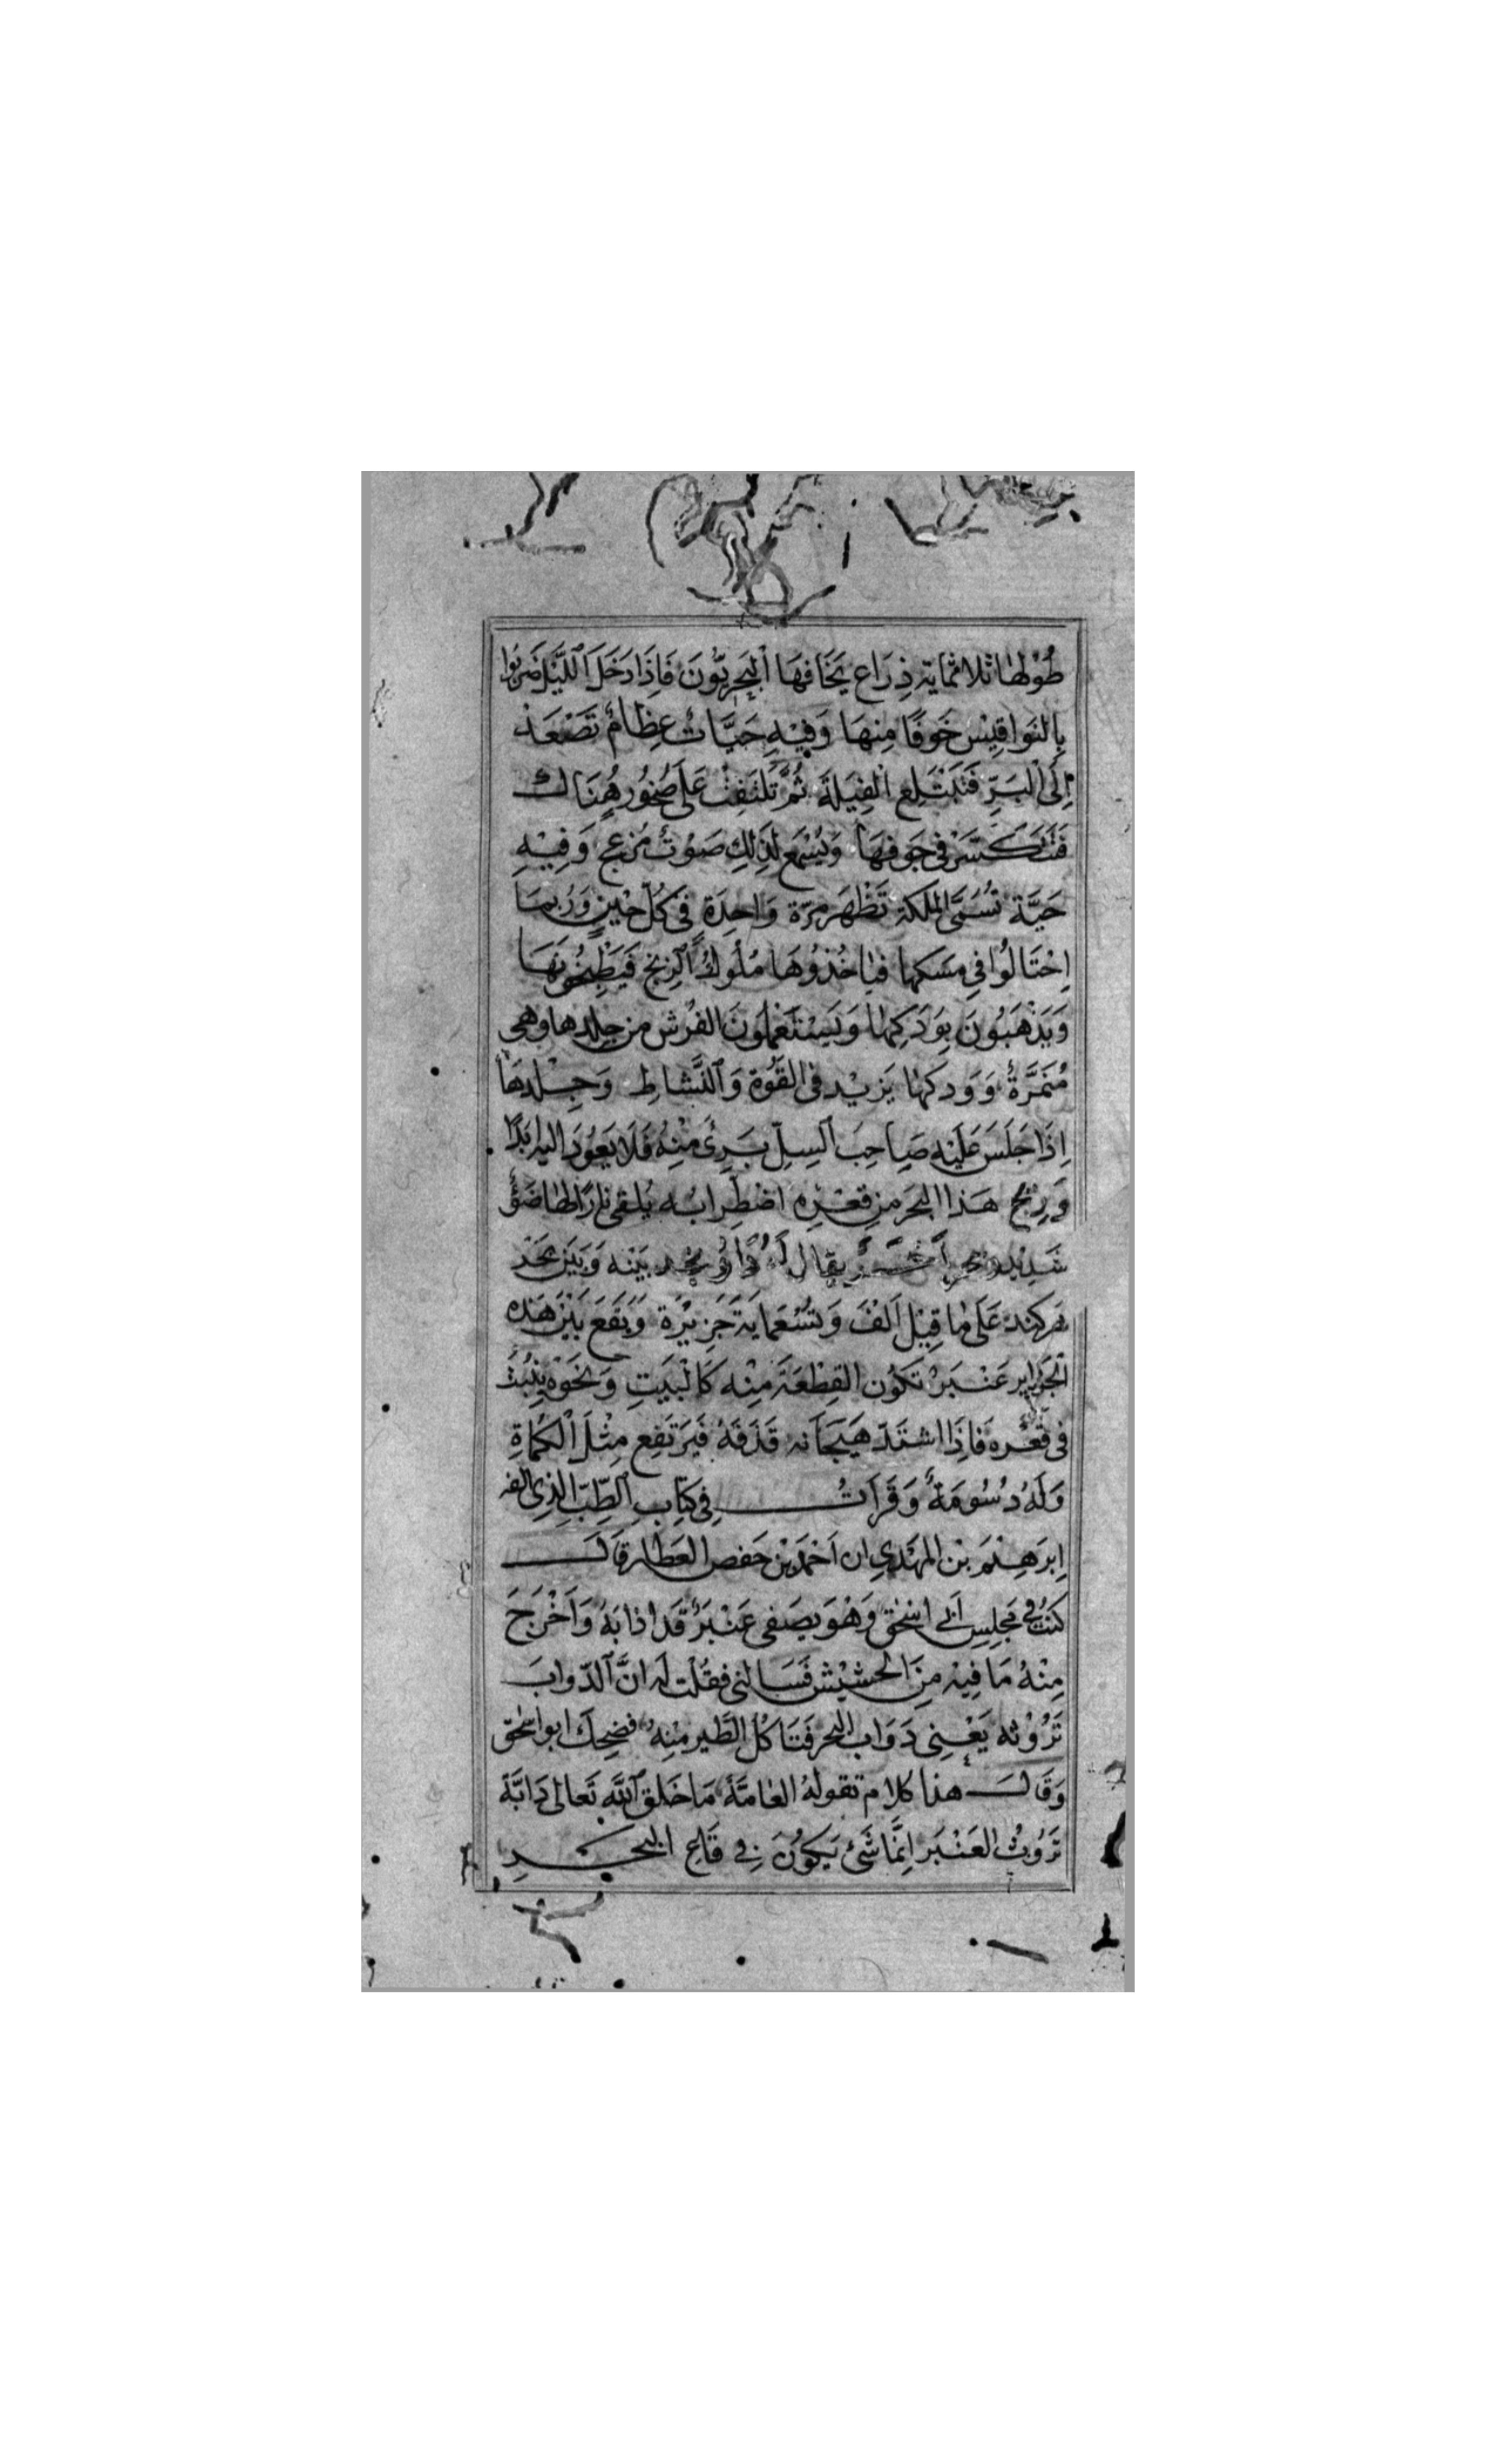 طُوْلهَا ثلاثمايۃ ذِرَاع يَخَافهَا اَلبَحَرِيّوُنَ فَاِذَا دَخَلَ اَللَّيْل ضَرَبوُا
بِالنَواقِيْس خَوفًا مِنهَا وَفِيْهِ حَيَّاتٌ عِظَامٌ تَصْعَدْ
اِلَى اْلبَرِّ فَتَبْتَلِع الْفِيَلَةَ ثُمَّ تَلْتَفِتْ عَلَى صُخوُرٍ هُنَاك
فَتَتَكَسَّرْ فى جَوفهَا وَيُسْمَع لِذَلِكِ صَوْتٌ مُزعج وَفِيْهِ
حَيَّة تُسَمَّى الملكۃ تَظْهَر مرّة وَاحِدَةٍ فى كُلّ حِيْنٍ وَرُبمَا
اِحْتَالوُا فى مسَكهَا فيَاخُذوُهَا مُلُوكُ اَلزِنج فَيَطْبخُوْنهَا
وَيَذْهَبُونَ بِوَدَكِهَا وَيَسْتَعْمِلوُنَ الفُرْش من جِلِدهَا وهى
مُنَمَّرَةٌ وَوَدكهَا يَزِيْد فى القَوُة وَالنَّشاطِ وَجِلْدهَا
اِذَا جَلَسَ عَلَيْهِ صَاحِبَ اَلسِلِّ بَرِئَ مْنِهُ فَلَا يَعوُدَ اليه ابَدًا
وَرِيْح هَذا البحَر مِن قَعْرِهِ اضْطِرابُه يُلقى نارًا لهَا ضَوْء
شَدِيْد يقَال لَهُ بَيْنه وَبَيْن بَحَر
هَركند عَلَى مَا قِيْل اَلْفَ وَتسُعْمَايَة جَزِيرَة وَيَقَعَ بَيْنَ هَذه
اَلْجَزَاير عَنْبَرْ تَكوُن القِطْعَة مِنْه كَالْبَيَتِ وَنَحَوْه يَنْبُتْ
فى قَعْره فَاِذَا اشتَدّ هَيَجَانه قَذَفَهُ فَيَرْتَفِع مِثْلَ اَلكَمَاةِ
وَلَهُ دُسُومَةٌ وَقَرَاَتُ فِى كتَابِ الطِّبّ الذِى الفه
اِبرَهِيْمَ بْن المَهْدِي ان اَحْمَد بْن حَفص العَطار قَالَ
كنتُ فِى مَجلِسِ اَبِى اسْحٰق وَهُوَ يصَفى عَنْبَرً قَد اذابَهُ وَاَخْرَجَ
مِنْهُ مَا فِيْهِ مِنَ الحْشيْش فَسَالنى فقُلْت له اِنَّ اَلدّوابَ
تَرُوْثه يَعْنِى دَوَاب البحر فَتَاكُل الطَّير مِنِهُ فضِحِكَ ابو اسْحٰق
وَقَالَ هذا كلام تقولهُ العَامَّة مَا خَلق اَللّٰه تَعالى دَابَّة
تَرَوُث العَنْبَر اِنَّمَا شَئ يَكوُنَ فِى قَاعِ البَحَرِ